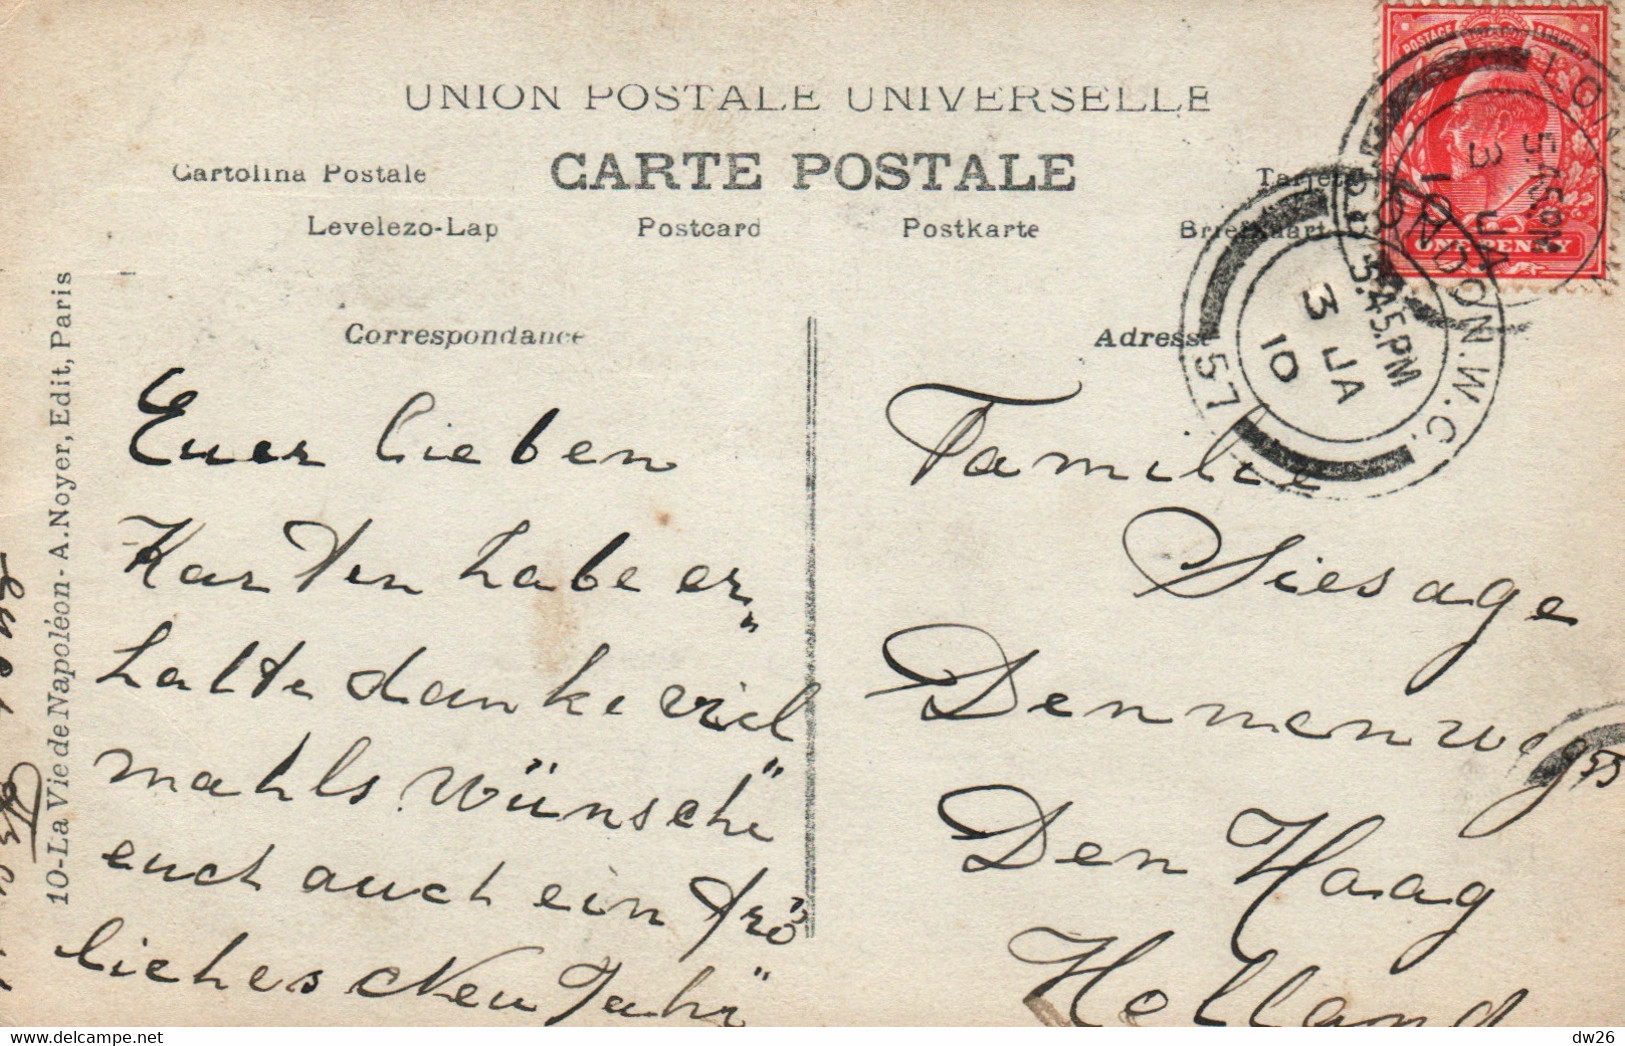 UNION POSTALE UNIVERSELLE
CARTE POSTALE
Cartolina Postale
Levelezo-Lap
Postcard
Postkarte
POSTAGE
ONE PENNY
LONDON.W.C.
5.45.PM
3 JA
10
57
5.45.PM
3 JA
10
Correspondance
Adresse
Euer lieben
Karten habe er"
halte danke viel
mahls wünsche
euch auch ein frö"
liches Neu Jahr
Familie
Siesage
Dennenweg 55
Den Haag
Holland
10-La Vie de Napoléon - A. Noyer, Edit, Paris
dw26